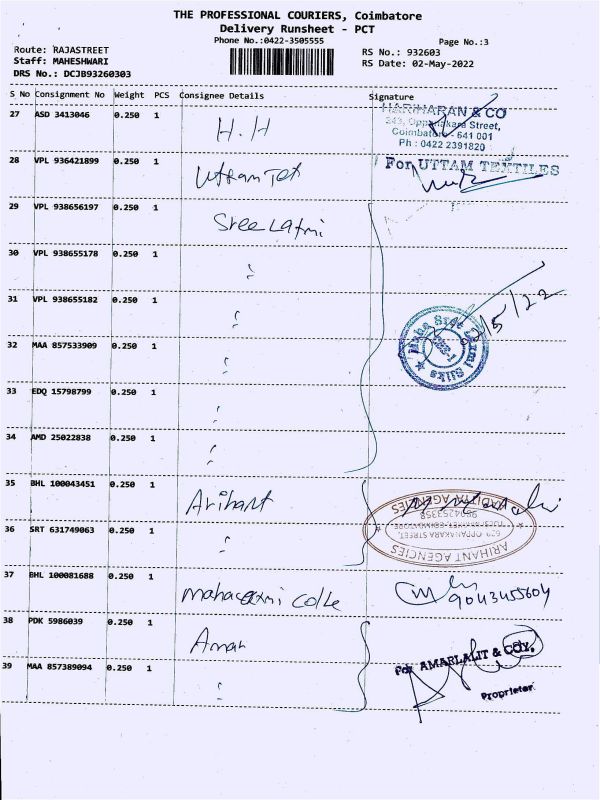 THE PROFESSIONAL COURIERS, Coimbatore
Delivery Runsheet - PCT
Phone No.:0422-3505555
Page No.:3
Route: RAJASTREET
RS No.: 932603
Staff: MAHESHWARI
RS Date: 02-May-2022
DRS No.: DCJB93260303
S No Consignment No Weight PCS Consignee Details Signature
27 ASD 3413046 0.250 1 H.H
HARIHARAN & CO
243, Oppanakara Street,
Coimbatore - 641 001
Ph : 0422 2391820
28 VPL 936421899 0.250 1 Uttam Tex
For UTTAM TEXTILES
29 VPL 938656197 0.250 1 Sree Laxmi
30 VPL 938655178 0.250 1 "
31 VPL 938655182 0.250 1 "
Maha Sree Laxmi Silks
2/5/22
32 MAA 857533909 0.250 1 "
33 EDQ 15798799 0.250 1 "
34 AMD 25022838 0.250 1 "
35 BHL 100043451 0.250 1 Arihant
36 SRT 631749063 0.250 1 "
ARIHANT AGENCIES
OPPANAKARA STREET,
AADITYA AGENCIES
37 BHL 100081688 0.250 1 mahalaxmi Colle
9043455604
38 PDK 5986039 0.250 1 Amar
For AMARLALIT & COY.
Proprietor
39 MAA 857389094 0.250 1 "